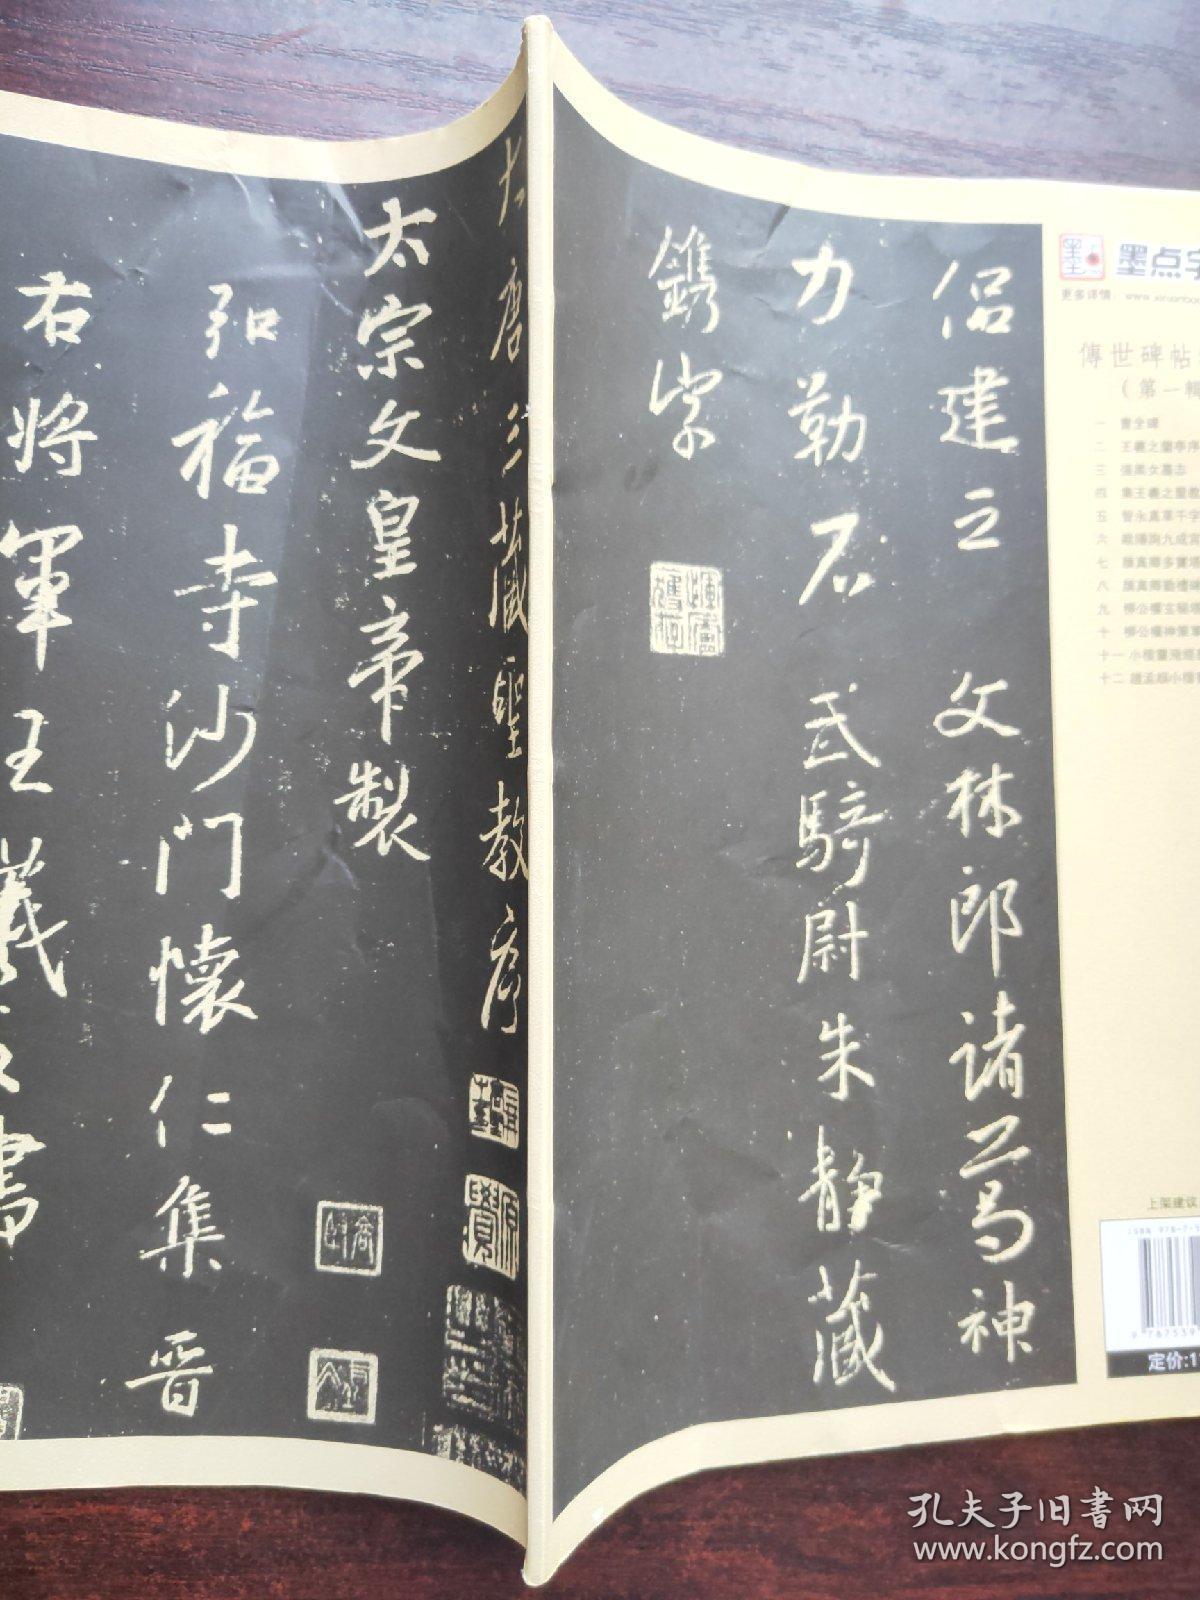 大唐三藏聖教序
太宗文皇帝製
弘福寺沙門懷仁集晉
右將軍王羲之書
侶建立 文林郎諸葛神
力勒石 武騎尉朱靜藏
鐫字
墨点字
更多详情:
傳世碑帖
(第一輯
一 曹全碑
二 王羲之蘭亭序
三 張黑女墓志
四 集王羲之聖教
五 智永真草千字
六 歐陽詢九成宮
七 顏真卿多寶塔
八 顏真卿勤禮碑
九 柳公權玄秘塔
十 柳公權神策軍
十一 小楷靈飛經
十二 趙孟頫小楷
上架建议
ISBN 978-7-5
9 787539
定价:1
孔夫子旧书网
www.kongfz.com